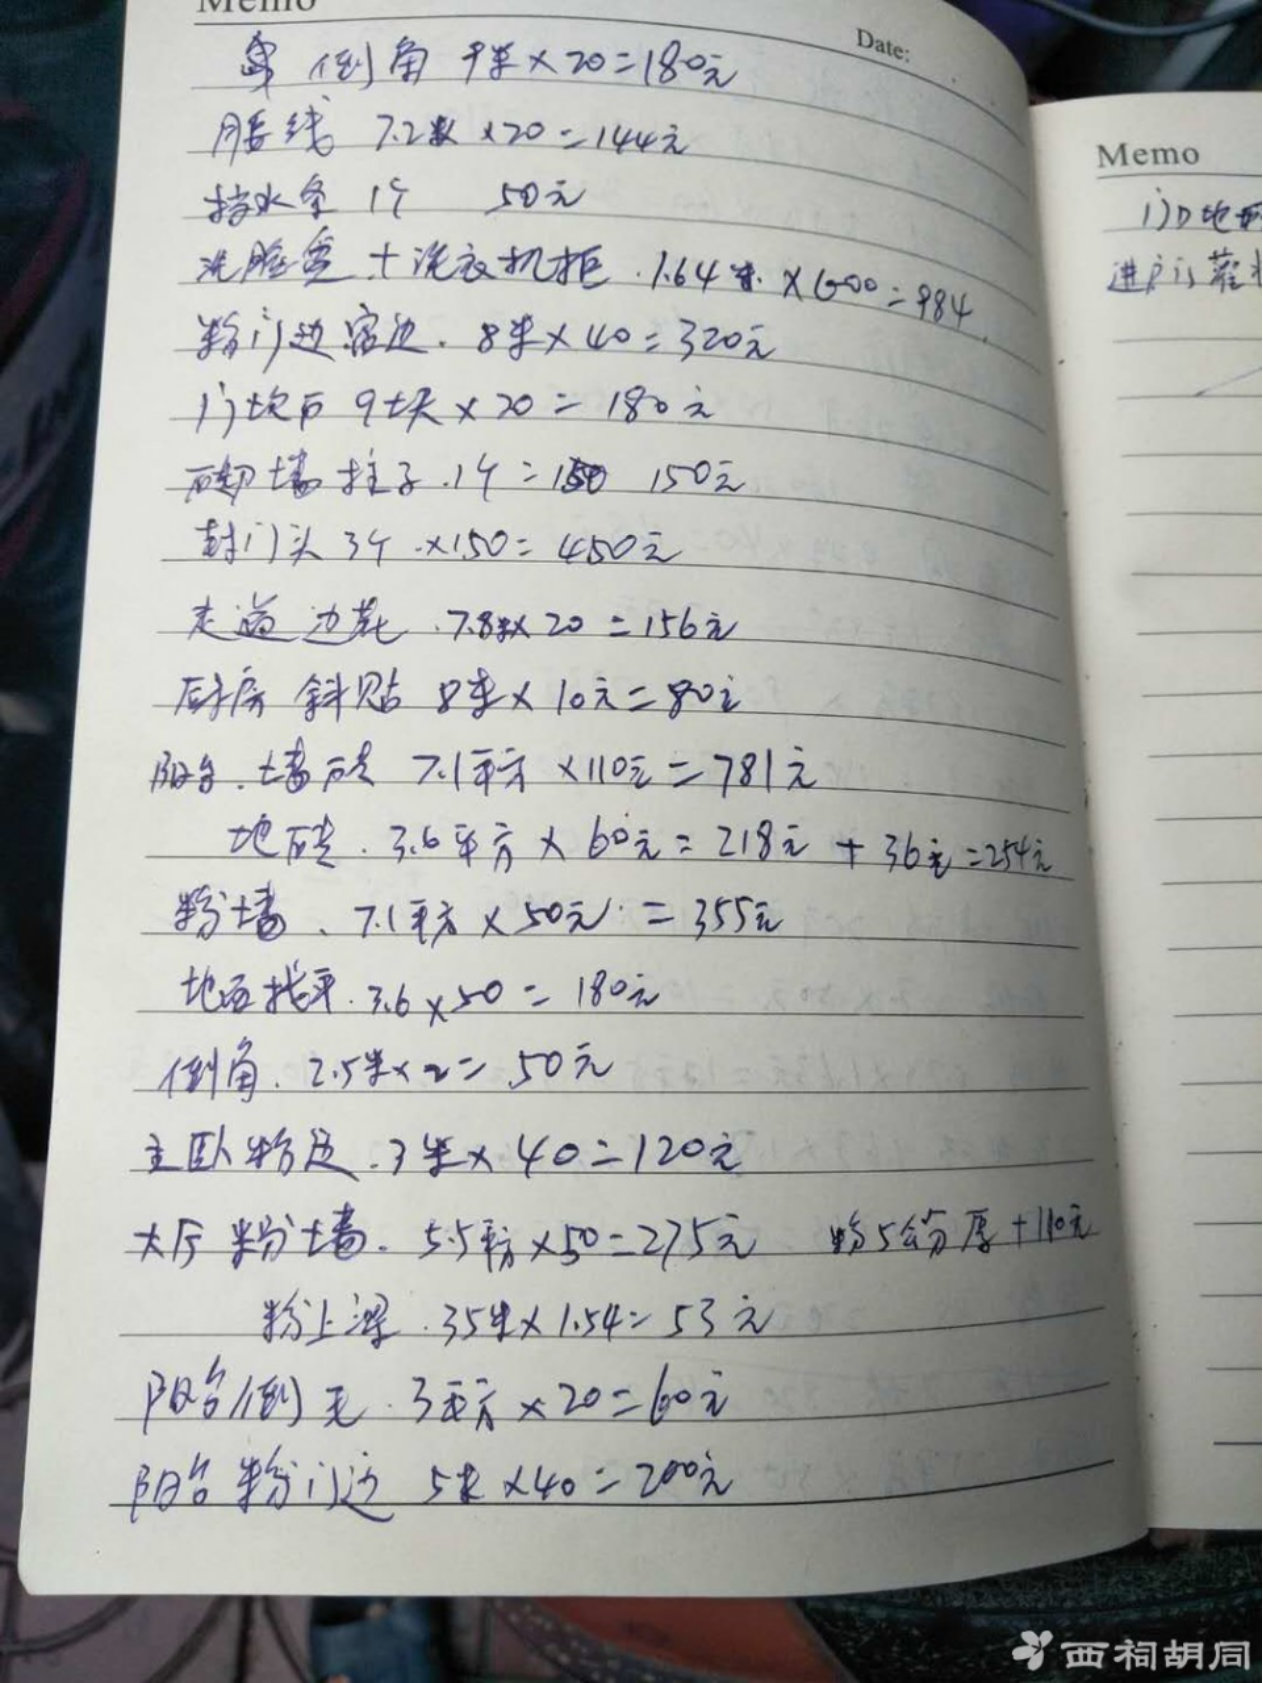 Memo
Date:
倒角 9米×20=180元
腰线 7.2米×20=144元
挡水条 1个 50元
洗脸盆+洗衣机柜.1.64米.×600=984
粉门边窗边.8米×40=320元
门坎石 9块×20=180元
砌墙柱子.1个=150 150元
封门头 3个.×150=450元
走道边花.7.8米×20=156元
厨房斜贴 8米×10元=80元
阳台.墙砖 7.1平方×110元=781元
地砖.3.6平方×60元=218元+36元=254元
粉墙.7.1平方×50元=355元
地面找平.3.6×50=180元
倒角.2.5米×2=50元
主卧粉边.3米×40=120元
大厅粉墙.5.5平方×50=275元 粉5公分厚+110元
粉上梁.35米×1.54=53元
阳台倒毛.3平方×20=60元
阳台粉门边 5米×40=200元
Memo
门口地
进户门灌
西祠胡同